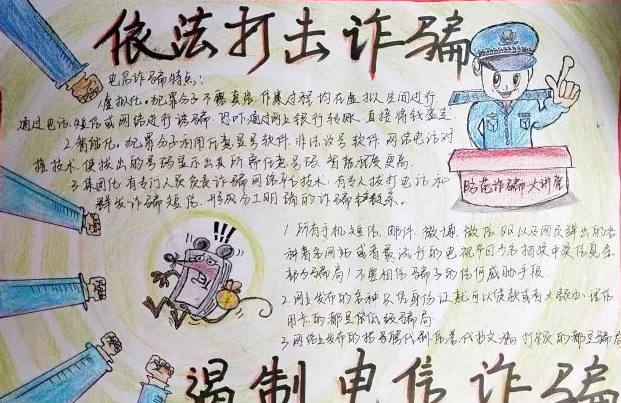 依法打击诈骗
电信诈骗特点:
1.虚拟化。犯罪分子不需真身,作案过程均在虚拟空间进行
通过电话、短信或网络进行诱骗、恐吓,通过网上银行转账,直接将钱盗走
2.智能化。犯罪分子利用任意显号软件、非法改号软件、网络电话对
接技术,使拨出的号码显示出其所需任意号码,智能程度更高
3.集团化,有专门人员负责诈骗网络平台技术,有专人拨打电话和
群发诈骗短信,形成分工明确的诈骗链条。
防范诈骗大讲堂
!!!
1.所有手机短信、邮件、微博、微信、QQ以及网页弹出的各
种著名网站或者最流行的电视节目为名抽奖中奖信息全
部为骗局!不要相信骗子的任何威胁手段
2.网上发布的各种只凭身份证就可以贷款或者大额办理信
用卡的都是低级骗局
3.网络上发布的招募代刷信誉代打文稿打款的都是骗局
遏制电信诈骗